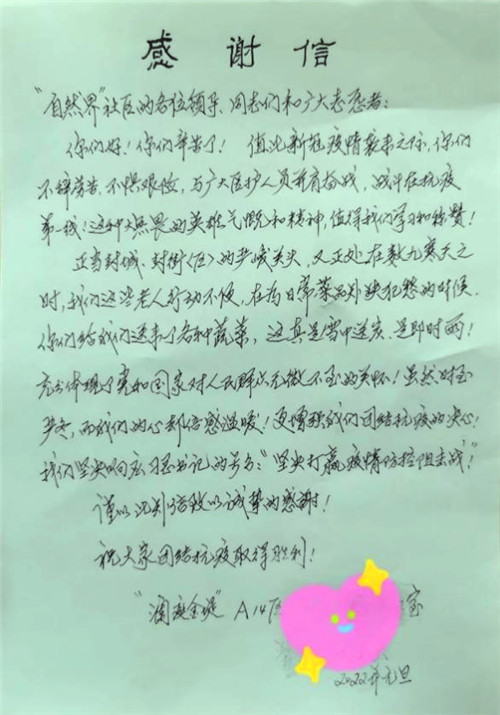 感谢信
"自然界"社区的各位领导、同志们和广大志愿者：
你们好！你们辛苦了！值此新冠疫情袭来之际，你们
不辞劳苦、不惧艰险，与广大医护人员并肩奋战，战斗在抗疫
第一线！这种大无畏的英雄气慨和精神，值得我们学习和称赞！
正当封城、封街〈区〉的严峻关头，又正处在数九寒天之
时，我们这些老人行动不便，在为日常菜品外缺犯愁的时候，
你们给我们送来了各种蔬菜，这真是雪中送炭、是即时雨！
充分体现了党和国家对人民群众无微不至的关怀！虽然时至
严冬，而我们的心都倍感温暖！更增强我们团结抗疫的决心！
我们坚决响应习总书记的号召："坚决打赢疫情防控阻击战"！
谨以此
致以诚挚的感谢！
祝大家团结抗疫取得胜利！
A14
宝
2022年元旦